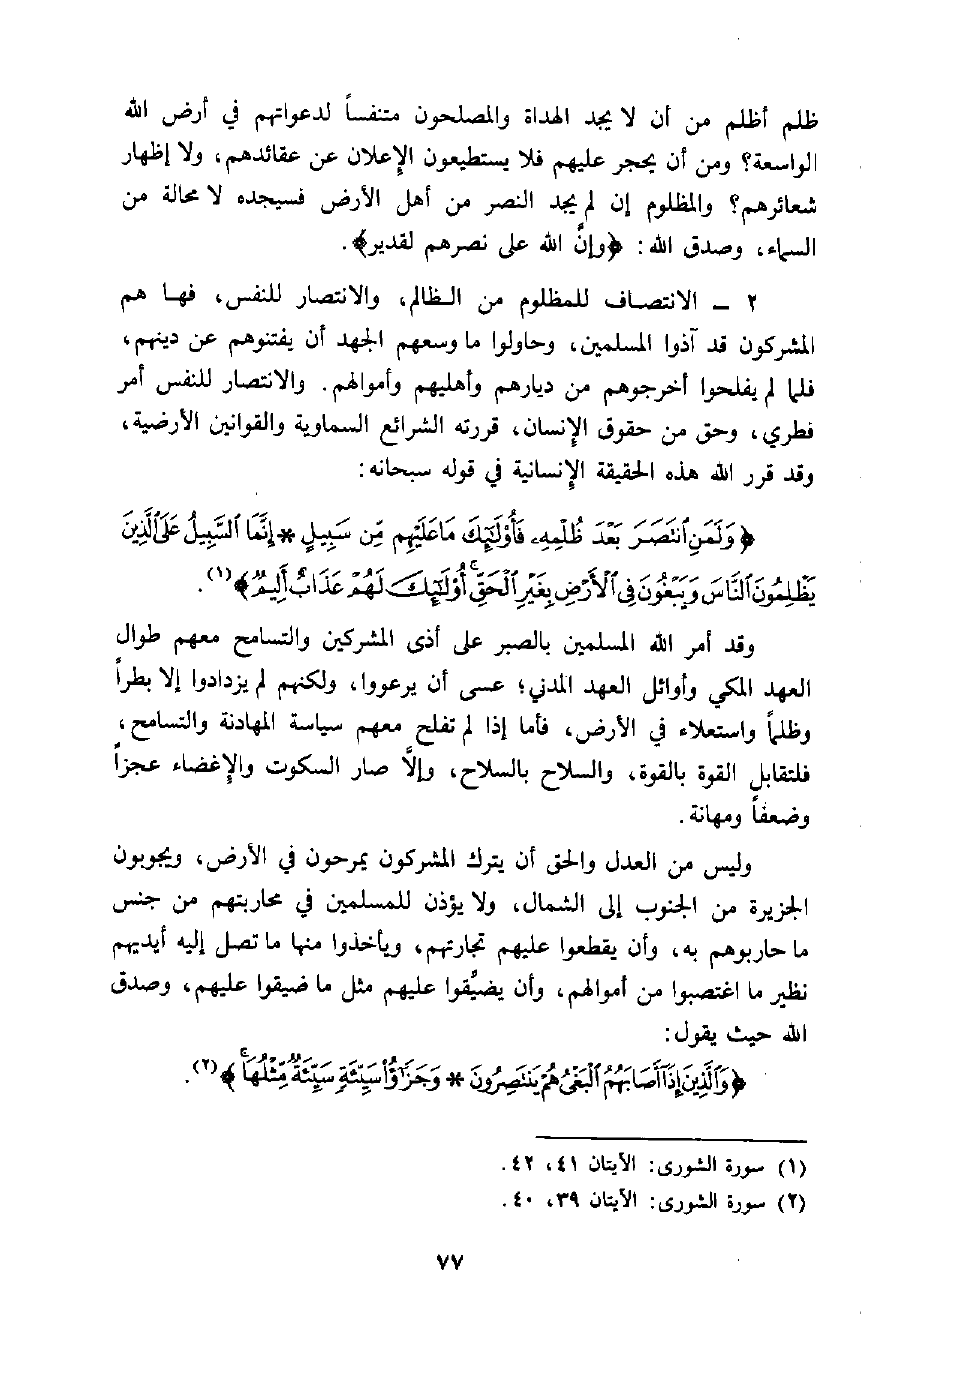 ظلم أظلم من أن لا يجد الهداة والمصلحون متنفساً لدعواتهم في أرض الله
الواسعة؟ ومن أن يحجر عليهم فلا يستطيعون الإعلان عن عقائدهم، ولا إظهار
شعائرهم؟ والمظلوم إن لم يجد النصر من أهل الأرض فسيجده لا محالة من
السماء، وصدق الله: ﴿وإنَّ الله على نصرهم لقدير﴾.
٢ ــ الانتصاف للمظلوم من الظالم، والانتصار للنفس، فها هم
المشركون قد آذوا المسلمين، وحاولوا ما وسعهم الجهد أن يفتنوهم عن دينهم،
فلما لم يفلحوا أخرجوهم من ديارهم وأهليهم وأموالهم. والانتصار للنفس أمر
فطري، وحق من حقوق الإنسان، قررته الشرائع السماوية والقوانين الأرضية،
وقد قرر الله هذه الحقيقة الإنسانية في قوله سبحانه:
﴿وَلَمَنِ ٱنتَصَرَ بَعْدَ ظُلْمِهِۦ فَأُوْلَٰٓئِكَ مَا عَلَيْهِم مِّن سَبِيلٍ * إِنَّمَا ٱلسَّبِيلُ عَلَى ٱلَّذِينَ
يَظْلِمُونَ ٱلنَّاسَ وَيَبْغُونَ فِى ٱلْأَرْضِ بِغَيْرِ ٱلْحَقِّ ۚ أُوْلَٰٓئِكَ لَهُمْ عَذَابٌ أَلِيمٌ﴾(١).
وقد أمر الله المسلمين بالصبر على أذى المشركين والتسامح معهم طوال
العهد المكي وأوائل العهد المدني؛ عسى أن يرعووا، ولكنهم لم يزدادوا إلا بطراً
وظلماً واستعلاء في الأرض، فأما إذا لم تفلح معهم سياسة المهادنة والتسامح،
فلتقابل القوة بالقوة، والسلاح بالسلاح، وإلاَّ صار السكوت والإغضاء عجزاً
وضعفاً ومهانة.
وليس من العدل والحق أن يترك المشركون يمرحون في الأرض، ويجوبون
الجزيرة من الجنوب إلى الشمال، ولا يؤذن للمسلمين في محاربتهم من جنس
ما حاربوهم به، وأن يقطعوا عليهم تجارتهم، ويأخذوا منها ما تصل إليه أيديهم
نظير ما اغتصبوا من أموالهم، وأن يضيِّقوا عليهم مثل ما ضيقوا عليهم، وصدق
الله حيث يقول:
﴿وَٱلَّذِينَ إِذَآ أَصَابَهُمُ ٱلْبَغْىُ هُمْ يَنتَصِرُونَ * وَجَزَٰٓؤُاْ سَيِّئَةٍ سَيِّئَةٌ مِّثْلُهَا ۖ﴾(٢).
(١) سورة الشورى: الآيتان ٤١، ٤٢.
(٢) سورة الشورى: الآيتان ٣٩، ٤٠.
٧٧